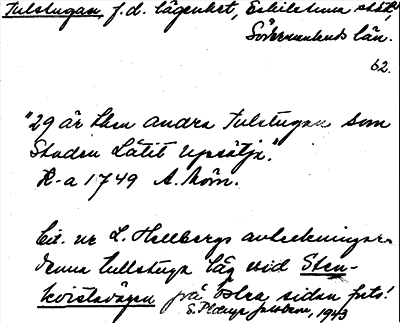 Tulstugan, f.d. lägenhet, Eskilstuna stad,
Södermanlands län.
62.
"29 är then andra Tulstugan som
Staden Låtit upsätja."
K-a 1749 A. Mörn.
Cit. ur L. Hellbergs avteckningar.
denna tullstuga låg vid Sten-
kvistavägen på östra sidan
1943